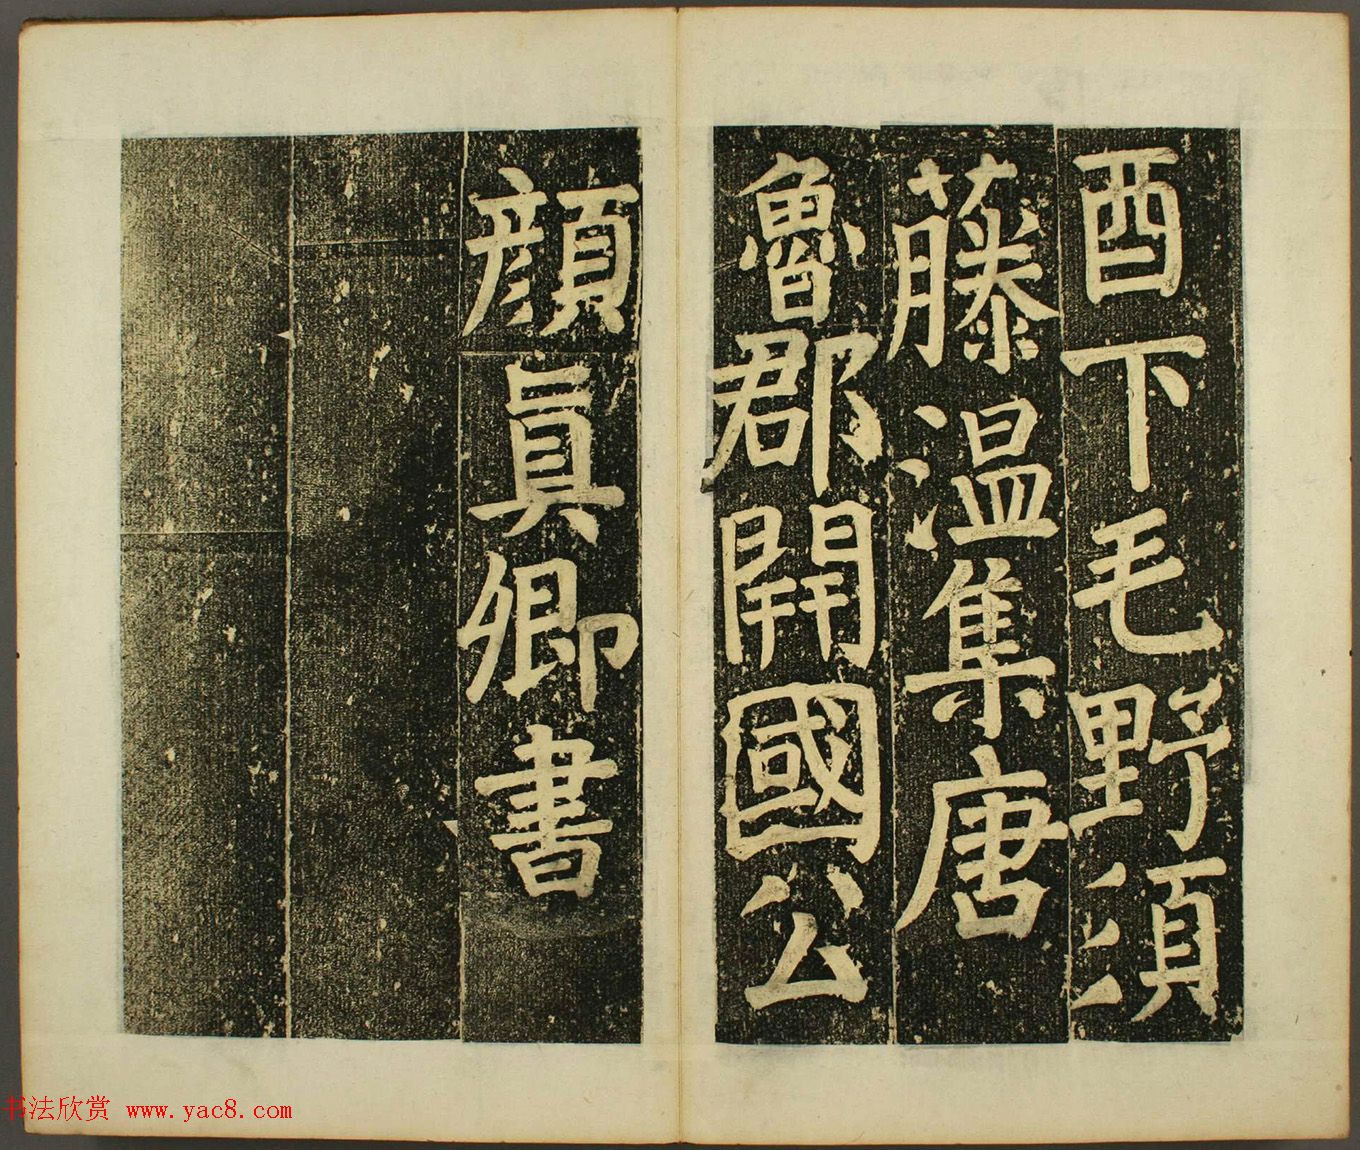 酉下毛野須
藤温集唐
魯郡開國公
顔真卿書
书法欣赏 www.yac8.com